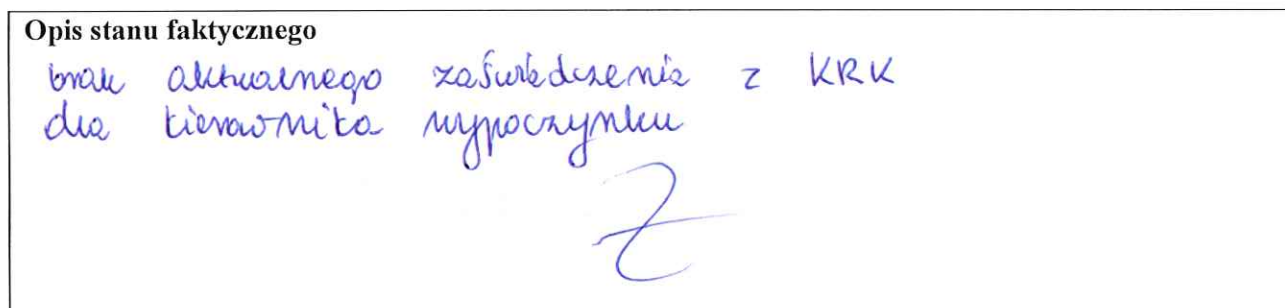 Opis stanu faktycznego
brak aktualnego zaświadczenia z KRK
dla kierownika wypoczynku